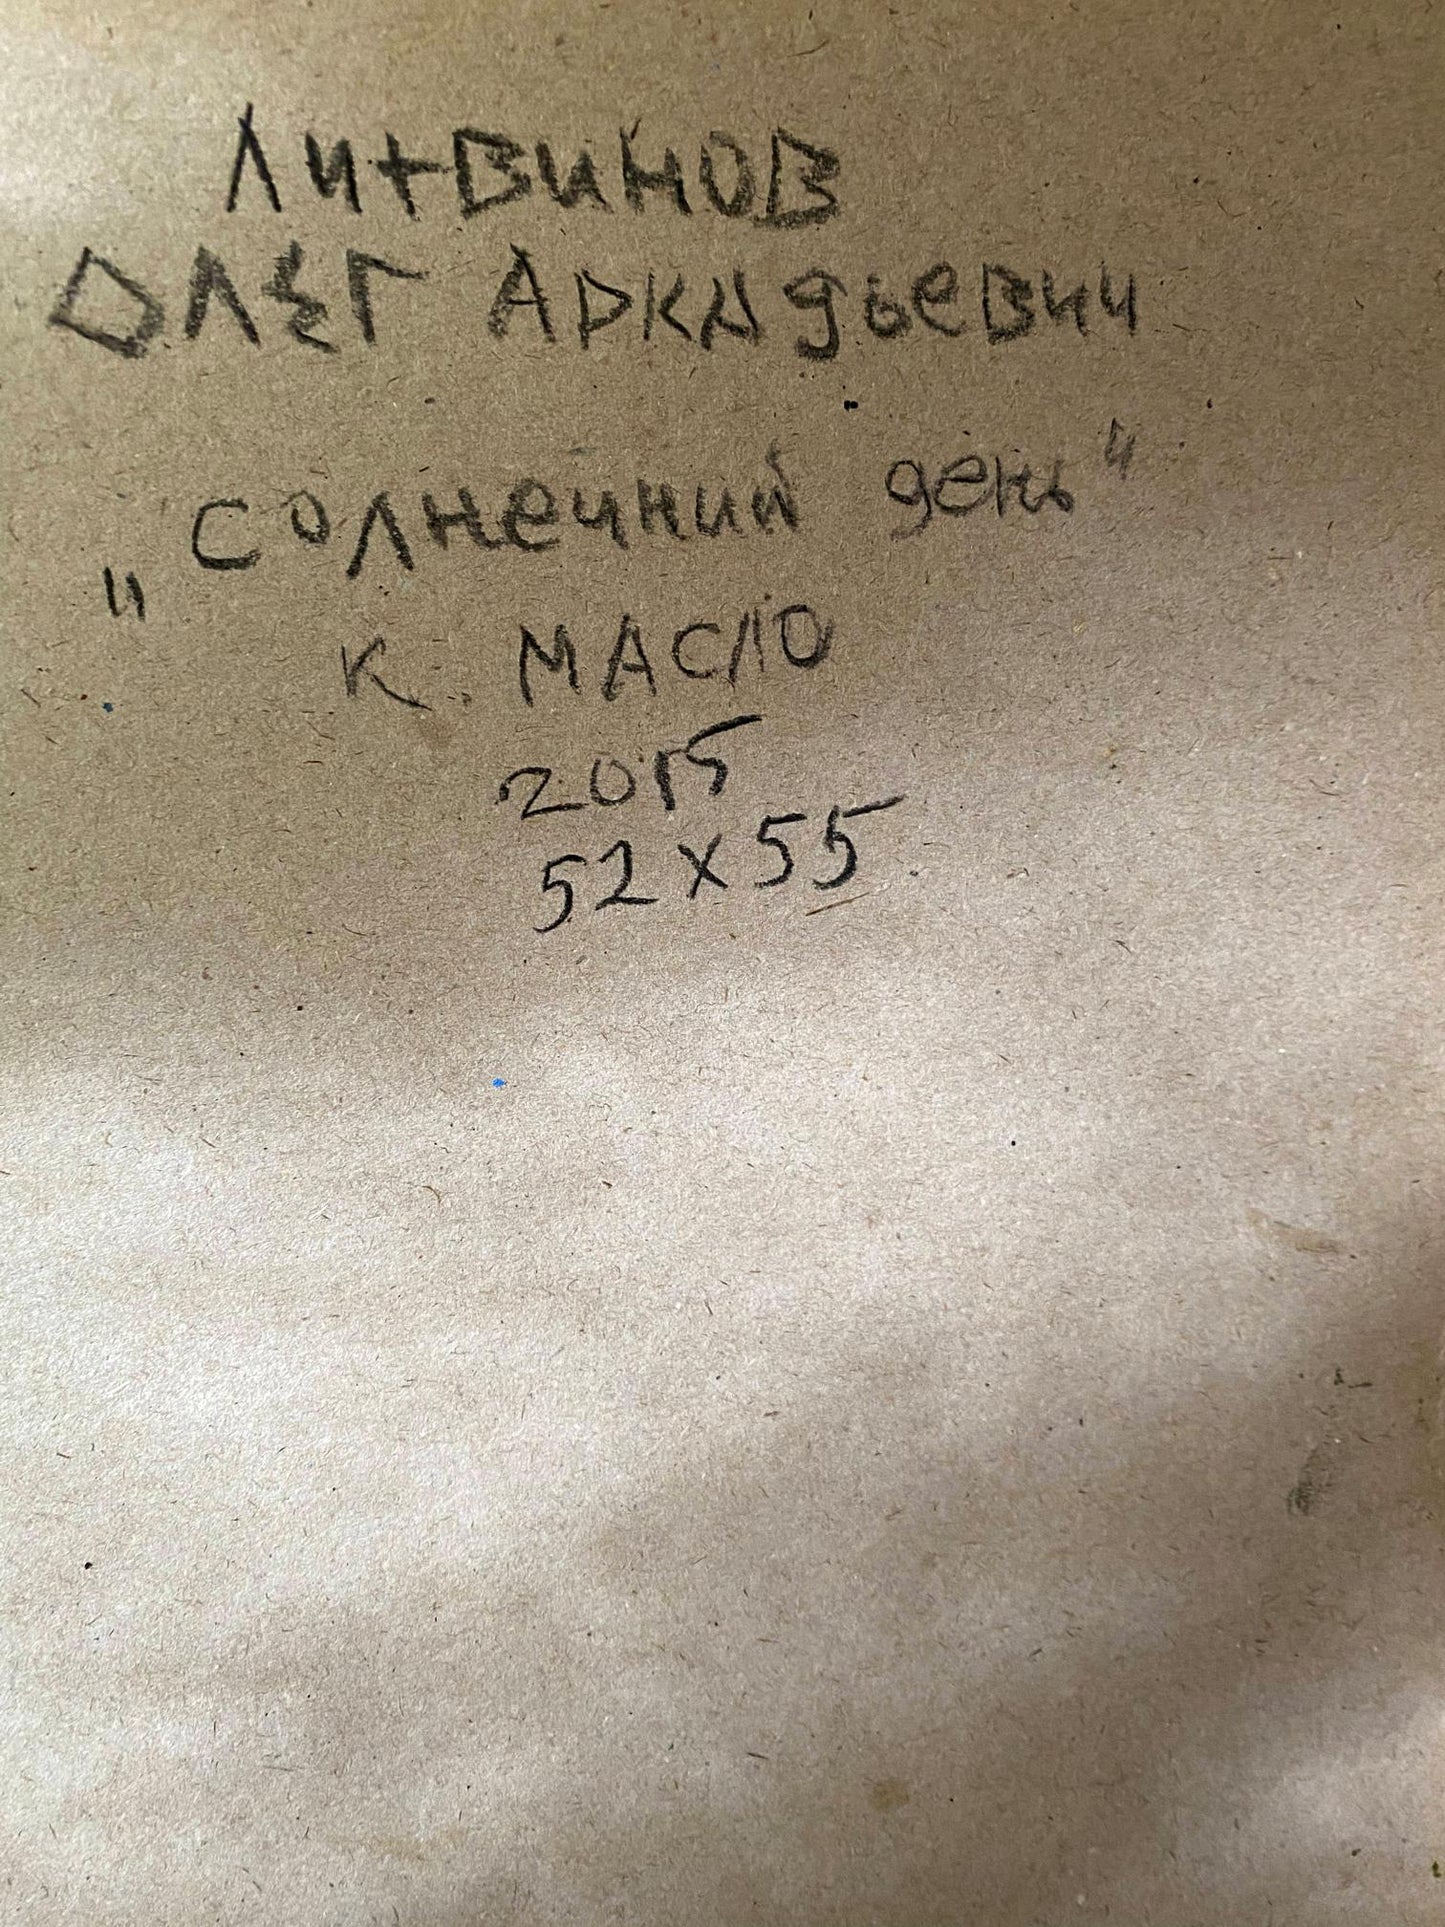 Литвинов
Олег Аркадьевич
„Солнечний день"
к. масло
2015
52x55